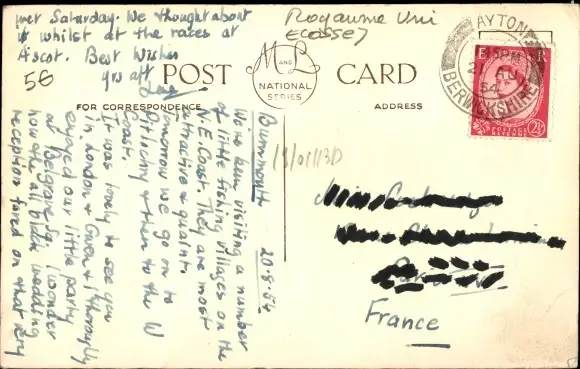 Burnmouth
20-8-54
We've been visiting a number
of little fishing villages on the
N.E. Coast. They are most
attractive & quaint.
Tomorrow we go on to
Pitlochry & then to the W
Coast.
It was lovely to see you
in London & Gwen & I thoroughly
enjoyed our little party
at Belgrave Sq. I wonder
how the all black wedding
reception fared on that very
wet Saturday. We thought about
it whilst at the races at
Ascot. Best Wishes
yrs aff
56
POST CARD
M AND L
NATIONAL
SERIES
FOR CORRESPONDENCE
ADDRESS
Royaume Uni
(Ecosse)
AYTON
PM
21 AU
54
BERWICKSHIRE
E R
POSTAGE
REVENUE
2½
France